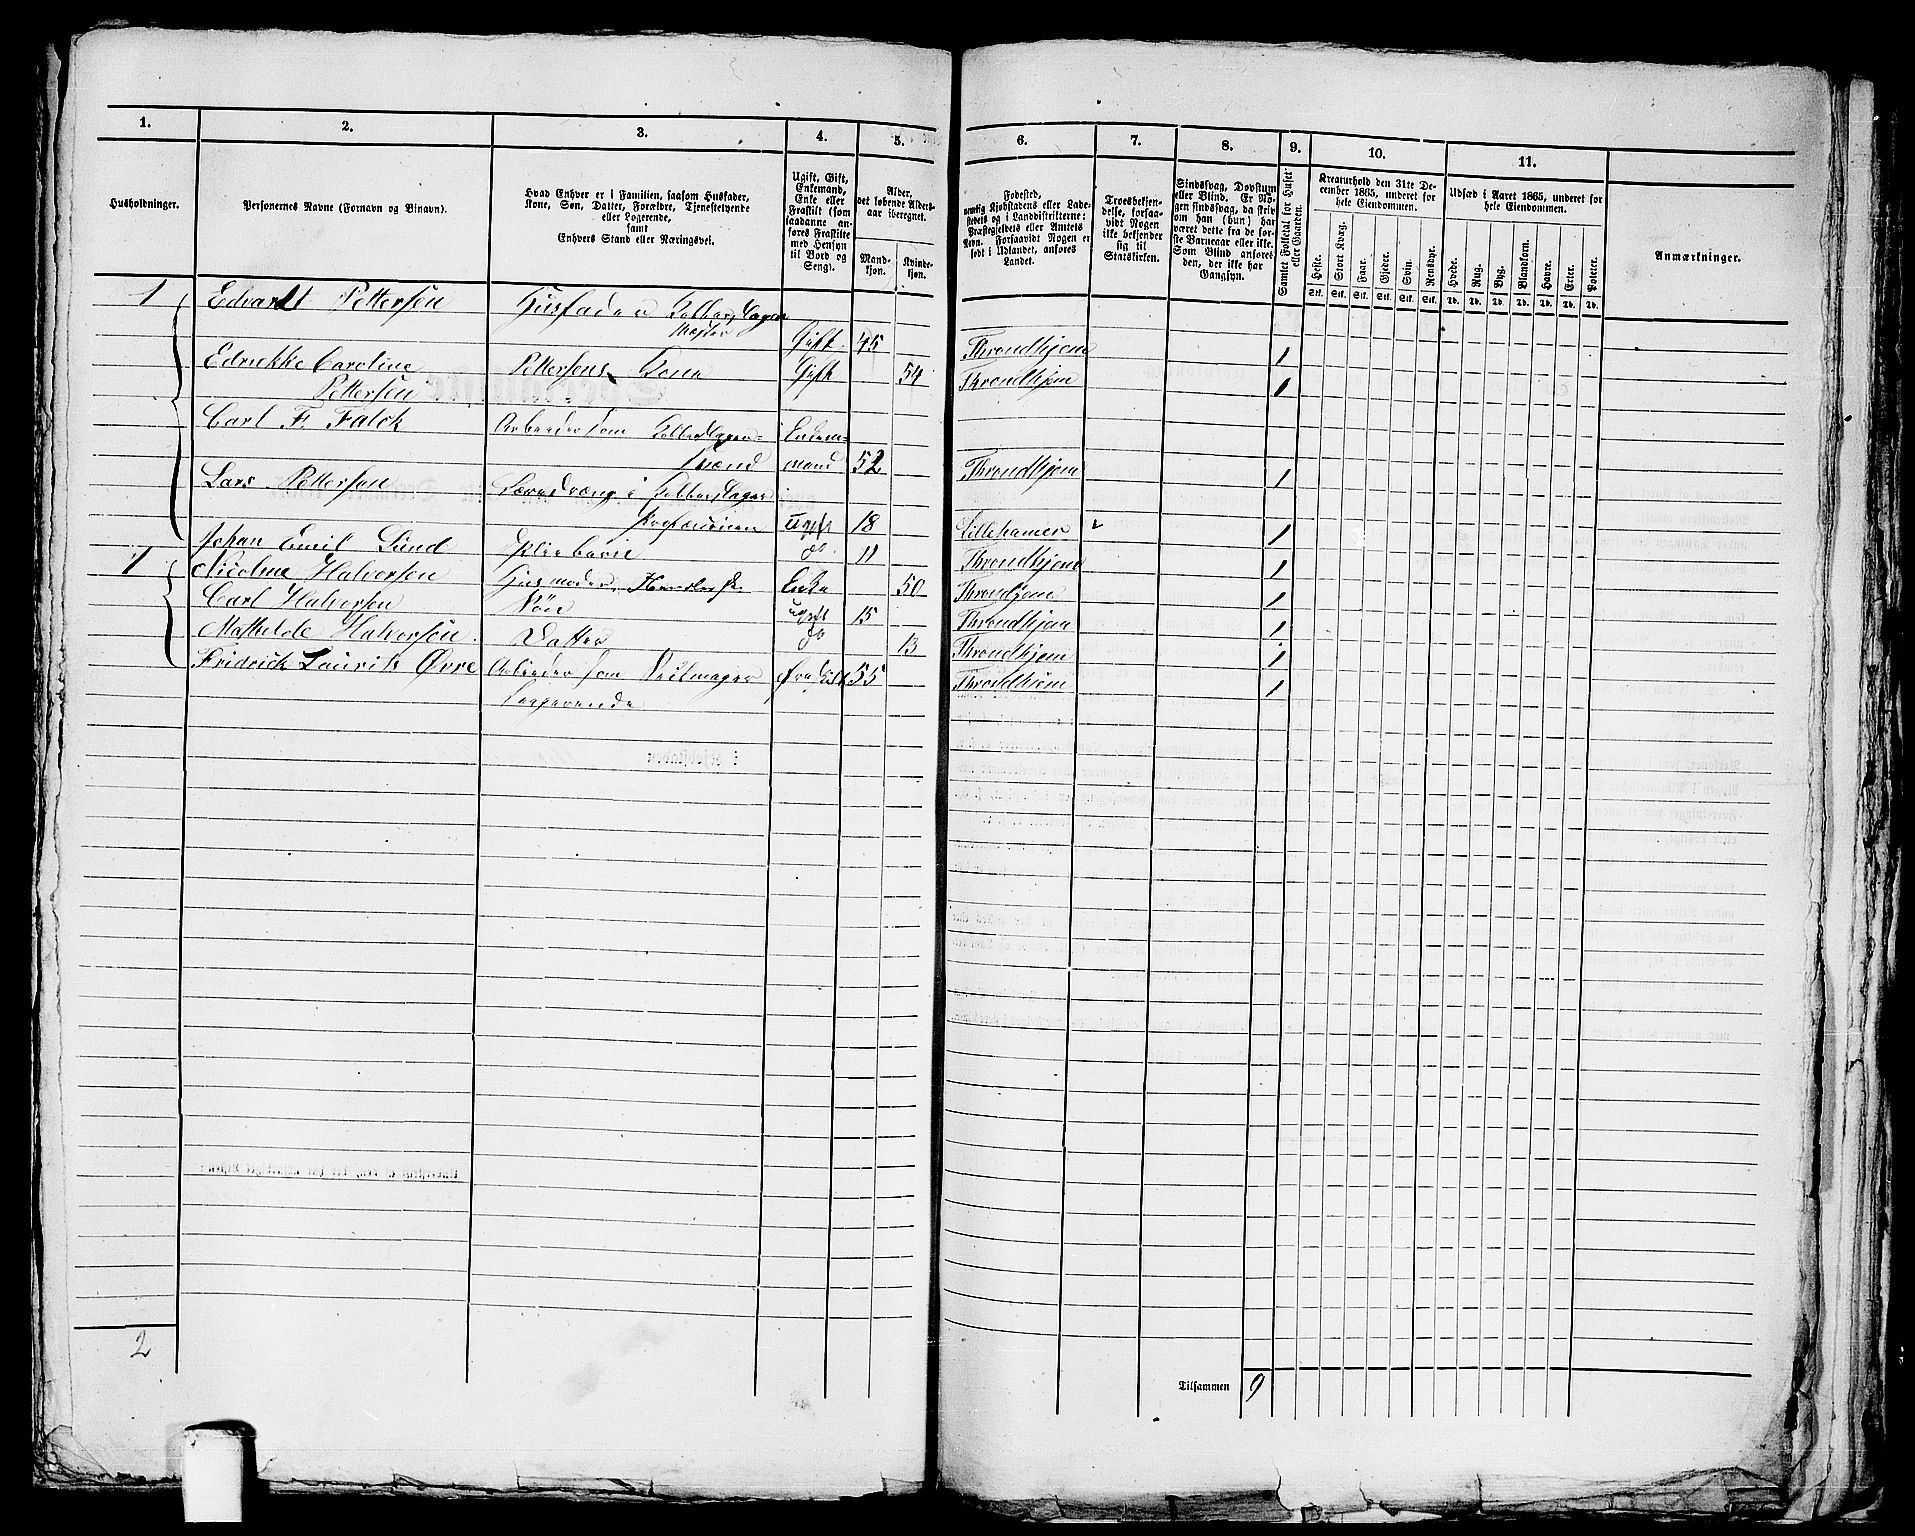 1. 2. 3. 4. 5. 6. 7. 8. 9. 10. 11.
Husholdninger.
Personernes Navne (Fornavn og Binavn).
Hvad Enhver er i Familien, saasom Husfader,
Kone, Søn, Datter, Forældre, Tjenestetyende
eller Logerende,
samt
Enhvers Stand eller Næringsvei.
Ugift, Gift,
Enkemand,
Enke eller
Fraskilt (som
saadanne an-
føres Fraskilte
med Hensyn
til Bord og
Seng).
Alder,
det løbende Alders-
aar iberegnet.
Mand-
kjøn.
Kvinde-
kjøn.
Fødested,
nemlig Kjøbstadens eller Lade-
stedets og i Landdistrikterne:
Præstegjeldets eller Amtets
Navn. Forsaavidt Nogen er
født i Udlandet, anføres
Landet.
Troesbekjen-
delse, forsaa-
vidt Nogen
ikke bekjender
sig til
Statskirken.
Sindssvag, Døvstum
eller Blind. Er No-
gen sindssvag, da skri-
ves om han (hun) har
været dette fra de før-
ste Barneaar eller ikke.
Som Blind ansøres
den, der ikke har
Gangsyn.
Samlet Folketal for Huset
eller Gaarden.
Kreaturhold den 31te De-
cember 1865, underet for
hele Eiendommen.
Heste. Stort Kvæg. Faar. Gjeder. Svin. Rensdyr.
Stk. Stk. Stk. Stk. Stk. Stk.
Udsæd i Aaret 1865, underet for
hele Eiendommen.
Hvede. Rug. Byg. Blandkorn. Havre. Erter. Poteter.
Td. Td. Td. Td. Td. Td. Td.
Anmærkninger.
1 Edvardt Pettersen Husfader
Mester Gift 45 Throndhjem 1
Caroline Pettersens Kone Gift 54 Throndhjem 1
Pettersen
Carl F. Falck Arbeider som Enkem-
Svend mand 52 Throndhjem 1
Lars Pettersen
Ugift 18 Lillehamer 1
Johan Emil Lund Pleiebarn do 11 Throndhjem 1
1 Nicoline Halvorsen Husmoder, Enke 50 Throndjem 1
Carl Halvorsen Søn ugift 15 Throndhjem 1
Mathilde Halvorsen Datter do 13 Throndhjem 1
Fridrick Laurik Øvre Arbeider som Seilmager Fraskilt 55 Throndhjem 1
Logerende
2
Tilsammen 9